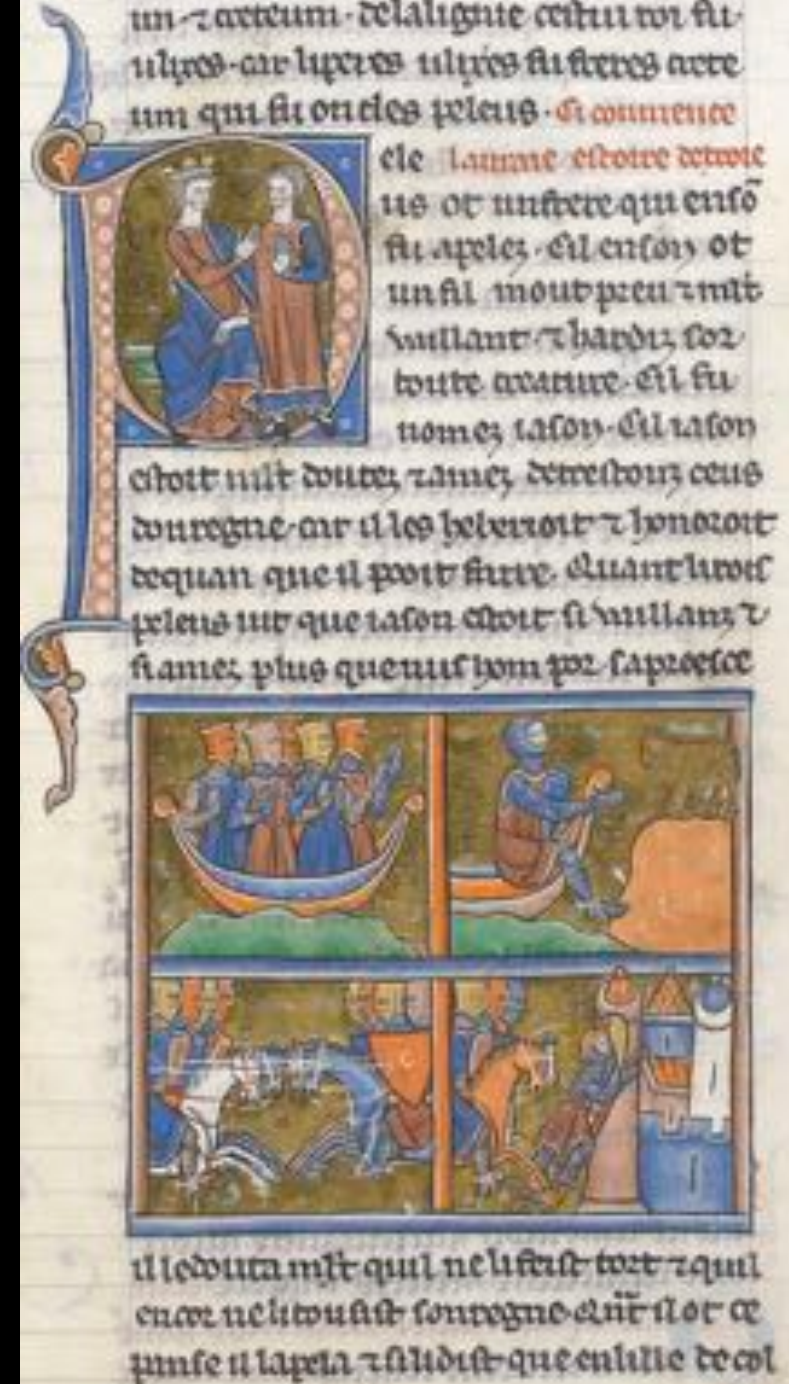 un ⁊ acteum. de la lignie cestui roi fu
ulixes. car li peres ulixes fu freres acte
um qui fu oncles peleus. Ci coumence
ele la uraie estoire de troie
us ot un frere qui enso̅
fu apelez. Cil enson ot
un fil mout preu ⁊ mlt
vaillant ⁊ hardiz sor
toute creature. Cil fu
nomez iason. Cil iason
estoit mlt doutez ⁊ amez de trestouz ceus
dou regne. car il lesheberioit ⁊ honoroit
de quan que il pooit faire. Quant li rois
peleus uit que iason estoit si vaillanz ⁊
si amez plus que nus hom por sa proesce
il le douta mlt quil ne li feist tort ⁊ quil
encor ne li tousist son regne. Qnt il ot ce
panse il lapela ⁊ si li dist que en lille de col